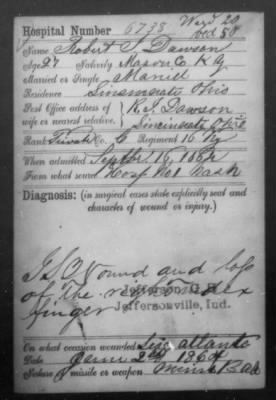 Ward 20
Hospital Number 6738 bed 50
Name Robert T Dawson
Age 27 Nativity Mason Co Ky
Married or Single Married
Residence Cincinnati Ohio
Post Office address of R. T Dawson
wife or nearest relative. Cincinnati Ohio
Rank Private Co. C Regiment 16 Ky
When admitted Septbr 16, 1864
From what source Hosp No 1 Nash
Diagnosis: (in surgical cases state explicitly seat and
character of wound or injury.)
G S Wound and loss
of the right index
Jefferson
finger
Jeffersonville, Ind.
On what occasion wounded Atlanta
Date June 2nd 1864
Nature of missile or weapon Minnie Ball